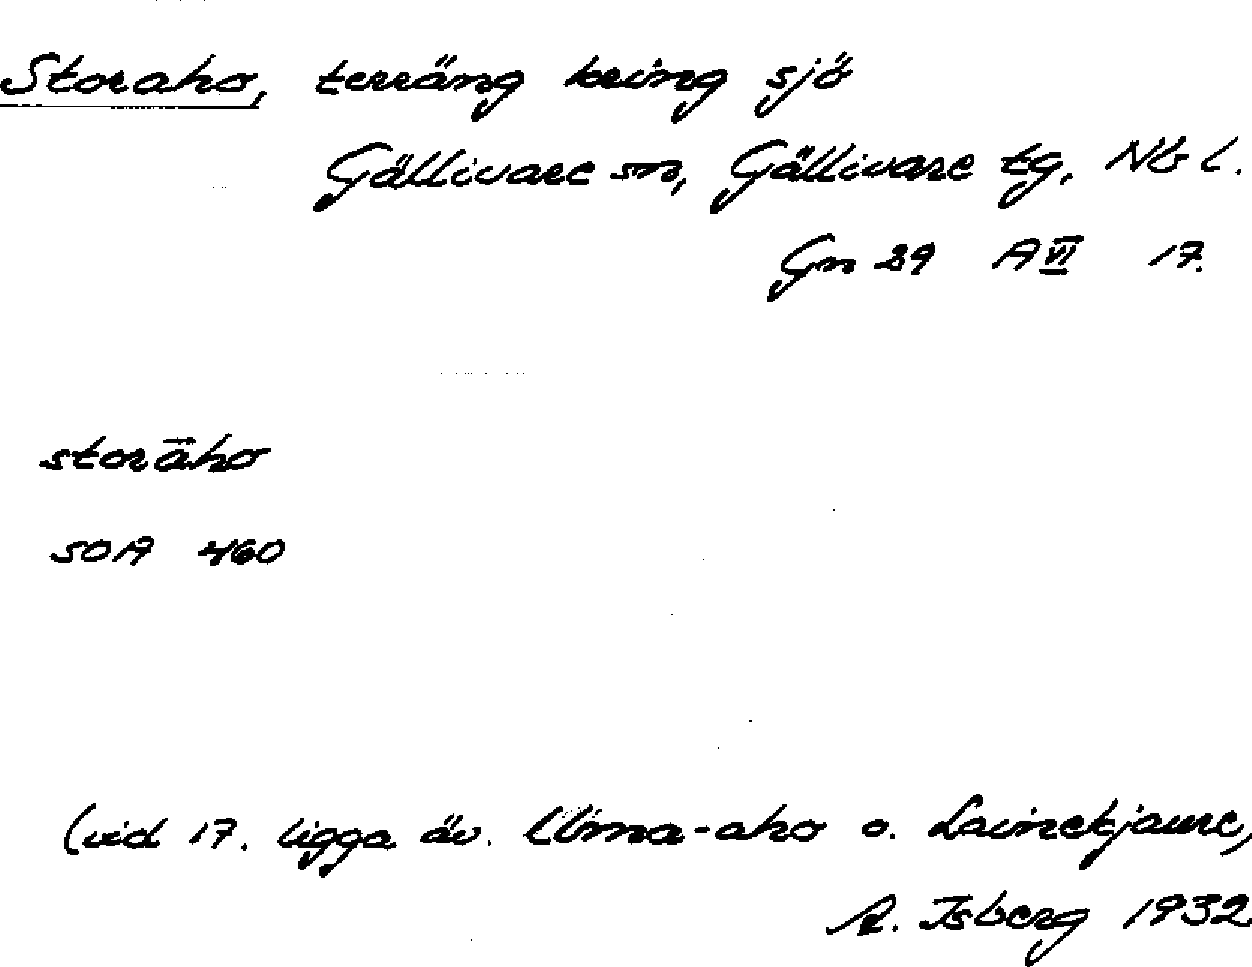 Storaho, terräng kring sjö
Gällivare sn, Gällivare tg, Nb l.
Gn 29 A VI 17.
storāho
SOA 460
(vid 17. ligga äv. Uima-aho o. Lainekjaure,
A. Isberg 1932